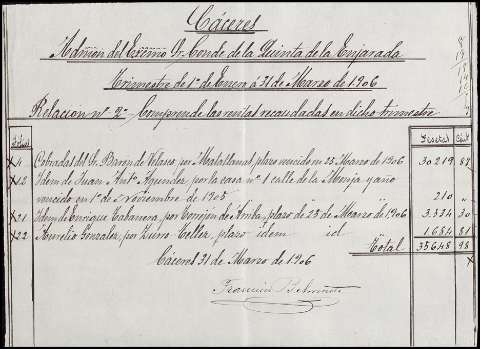 Cáceres
Admon del Excmo Sr. Conde de la Quinta de la Enjarada
Trimestre de 1º de Enero á 31 de Marzo de 1906
Relacion nº 2º Comprende las rentas recaudadas en dicho trimestre
Pesetas Cts
4 Cobradas del Sr. Baron de Velasco, por Matallanas, plazo vencido en 25 Marzo de 1906 30219 87
12 Idem de Juan Antº por la casa nº 1 calle de la Monja y año
vencido en 1º de Noviembre de 1905 " " " 210 "
21 Idem de Enrique Cabanera, por Torrejon de Arriba, plazo de 25 de Marzo de 1906 3.334 30
22 Aurelio Gonzalez, por Zurro Tellez, plazo idem id 1684 81
Total 35648 98
Cáceres 31 de Marzo de 1906